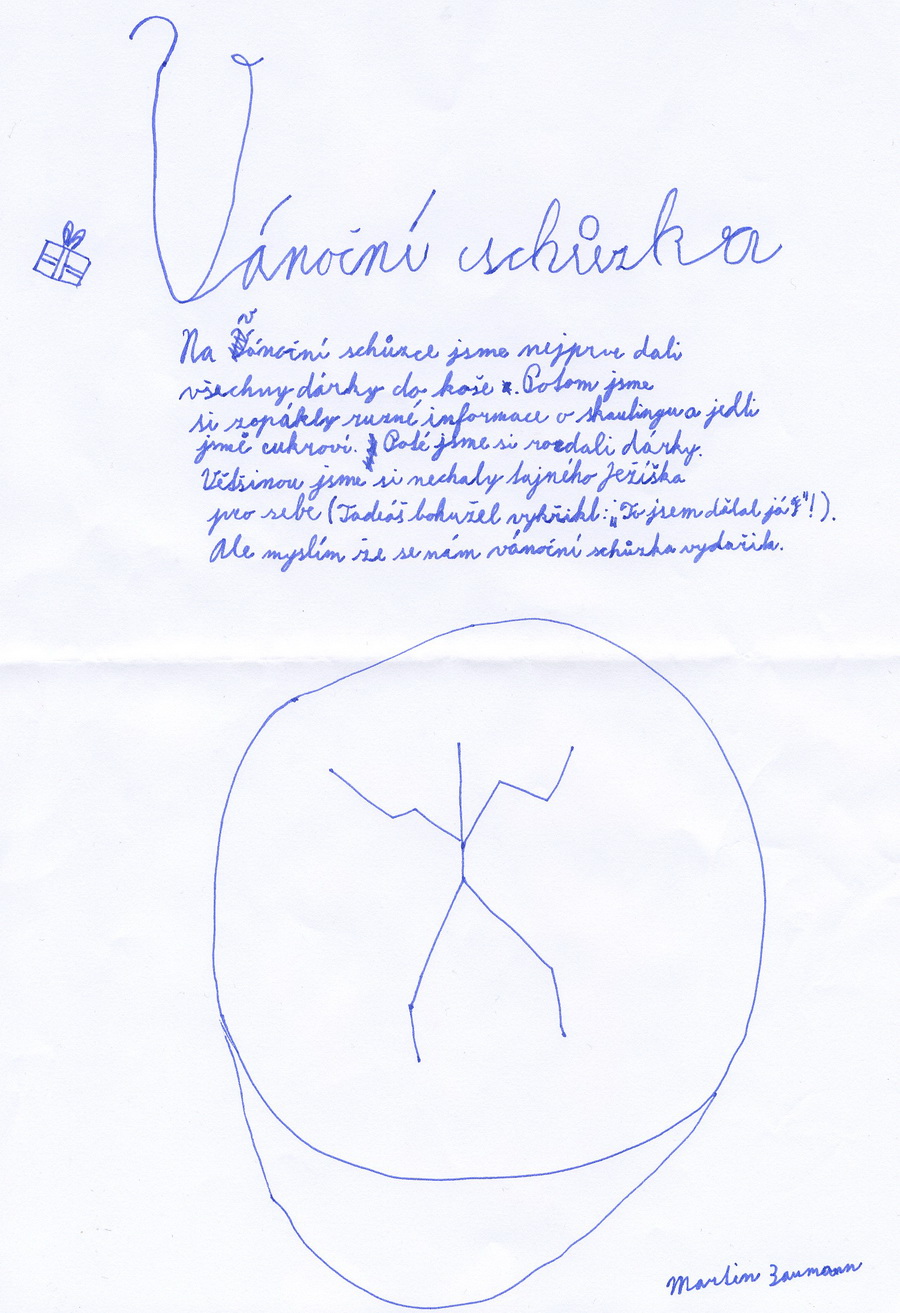 Vánoční schůzka
Na vánoční schůzce jsme nejprve dali
všechny dárky do koše. Potom jsme
si zopákly ruzné informace o skautingu a jedli
jsmě cukroví. Poté jsme si rozdali dárky.
Většinou jsme si nechaly tajného Ježíška
pro sebe (Tadeáš bohužel vykřikl: „To jsem dělal já"!).
Ale myslím že se nám vánoční schůzka vydařila.
Martin Zaumann